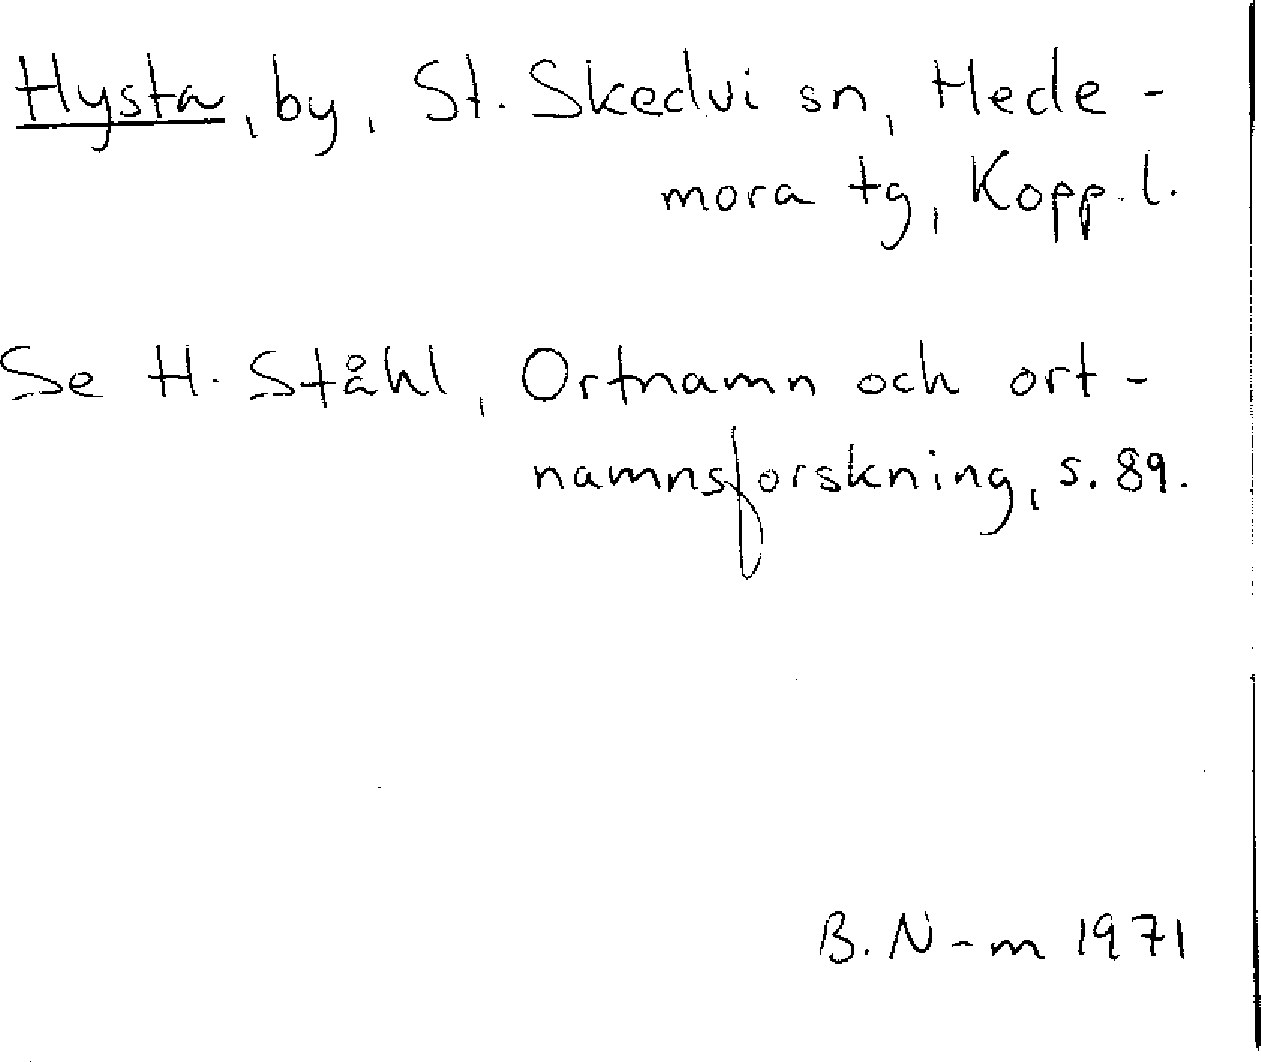 Hysta, by, St. Skedvi sn, Hede-
mora tg, Kopp. l.
Se H. Ståhl, Ortnamn och ort-
namnsforskning, s. 89.
B. N-m 1971